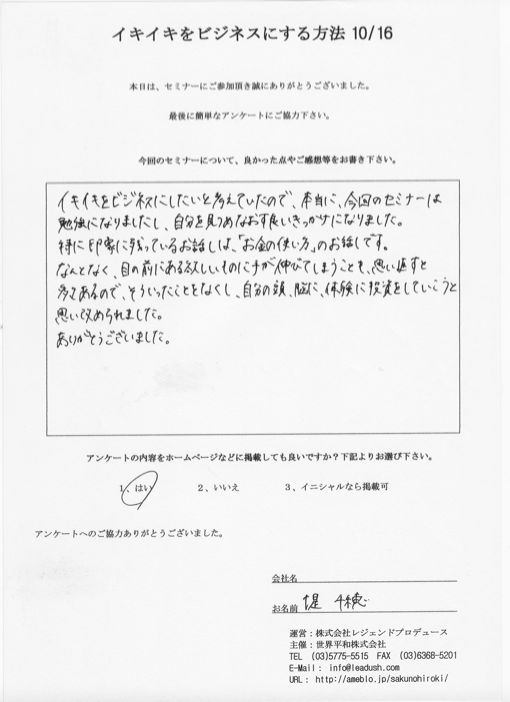 イキイキをビジネスにする方法 10/16
本日は、セミナーにご参加頂き誠にありがとうございました。
最後に簡単なアンケートにご協力下さい。
今回のセミナーについて、良かった点やご感想等をお書き下さい。
イキイキをビジネスにしたいと考えていたので、本当に、今回のセミナーは
勉強になりましたし、自分を見つめなおす良いきっかけになりました。
特に印象に残っているお話しは、「お金の使い方」のお話しです。
なんとなく、目の前にある欲しいものに手が伸びてしまうことも、思い返すと
多々あるので、そういったことをなくし、自分の頭、脳に、体験に投資をしていこうと
思い改められました。
ありがとうございました。
アンケートの内容をホームページなどに掲載しても良いですか？下記よりお選び下さい。
1、はい 2、いいえ 3、イニシャルなら掲載可
アンケートへのご協力ありがとうございました。
会社名
お名前 堤 千穂
運営：株式会社レジェンドプロデュース
主催：世界平和株式会社
TEL (03)5775-5515 FAX (03)6368-5201
E-Mail： info@leadush.com
URL： http://ameblo.jp/sakunohiroki/